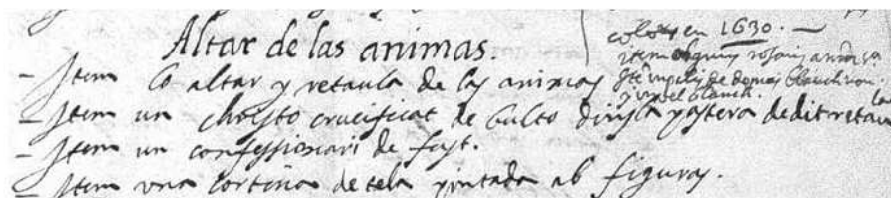 Altar de las animas.
- Item lo altar y retaula de las animas
- Item un christo crucificat de bulto dins la pastera de dit retau
la
- Item un confessionari de fust.
- Item una cortina de tela pintada ab figuras.
en 1630. -
item
de domas blanch
blanch.